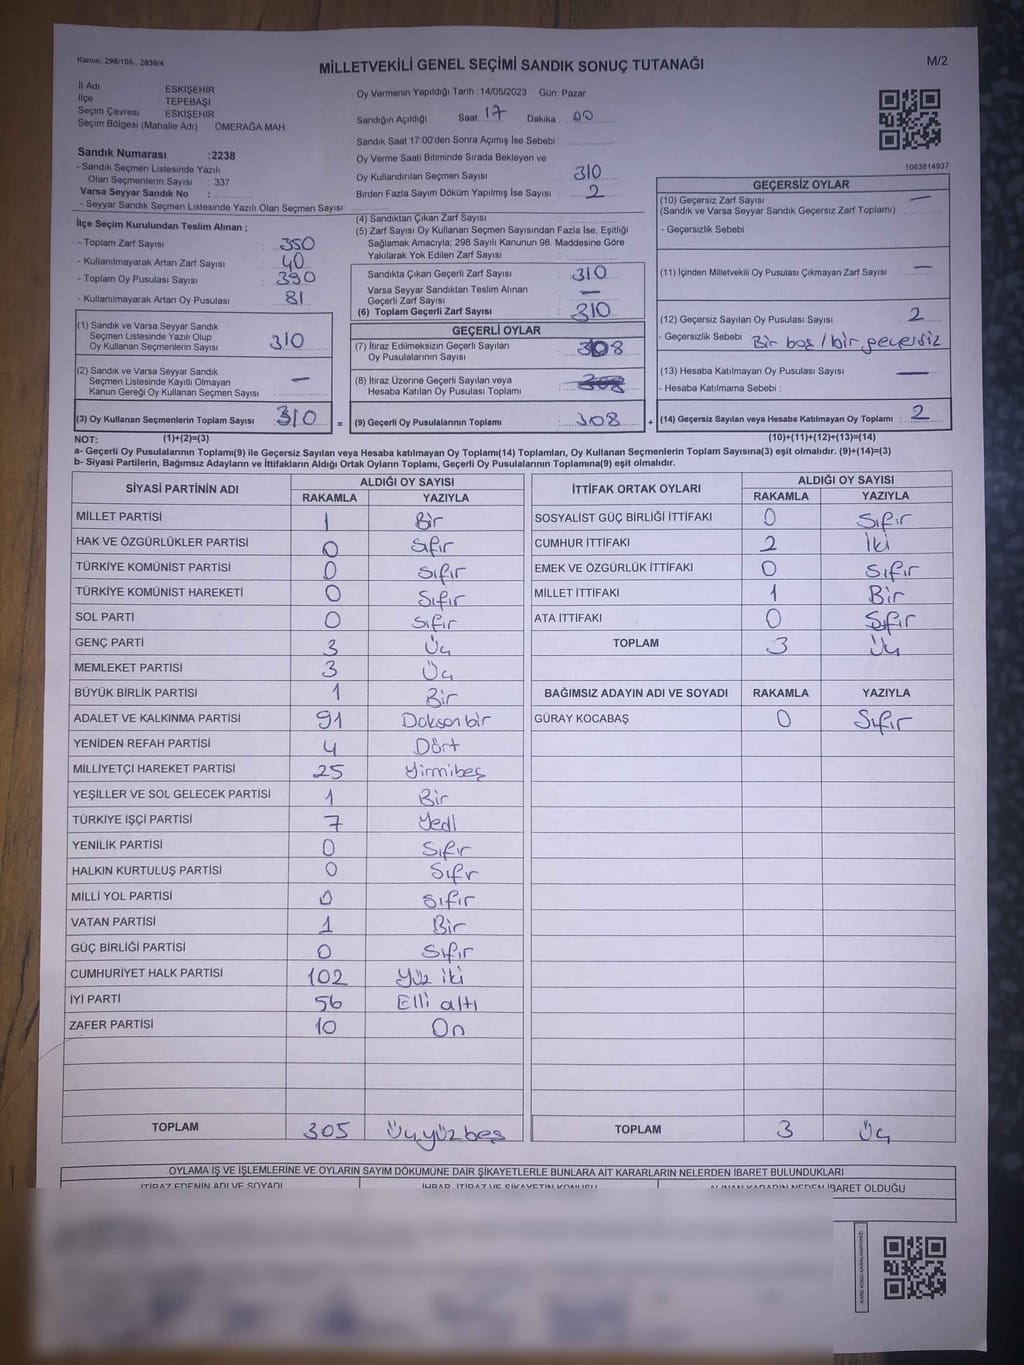 Kanun: 298/105 , 2839/4
MİLLETVEKİLİ GENEL SEÇİMİ SANDIK SONUÇ TUTANAĞI
M/2
İl Adı : ESKİŞEHİR
İlçe : TEPEBAŞI
Seçim Çevresi : ESKİŞEHİR
Seçim Bölgesi (Mahalle Adı) : ÖMERAĞA MAH.
Sandık Numarası :2238
- Sandık Seçmen Listesinde Yazılı
Olan Seçmenlerin Sayısı : 337
Varsa Seyyar Sandık No :
- Seyyar Sandık Seçmen Listesinde Yazılı Olan Seçmen Sayısı :
Oy Vermenin Yapıldığı Tarih : 14/05/2023 Gün: Pazar
Sandığın Açıldığı Saat: 17 Dakika : 00
Sandık Saat 17:00'den Sonra Açımış İse Sebebi :
Oy Verme Saati Bitiminde Sırada Bekleyen ve
Oy Kullandırılan Seçmen Sayısı : 310
Birden Fazla Sayım Döküm Yapılmış İse Sayısı : 2
1083614937
İlçe Seçim Kurulundan Teslim Alınan ;
- Toplam Zarf Sayısı : 350
- Kullanılmayarak Artan Zarf Sayısı : 40
- Toplam Oy Pusulası Sayısı : 390
- Kullanılmayarak Artan Oy Pusulası : 81
(1) Sandık ve Varsa Seyyar Sandık
Seçmen Listesinde Yazılı Olup
Oy Kullanan Seçmenlerin Sayısı : 310
(2) Sandık ve Varsa Seyyar Sandık
Seçmen Listesinde Kayıtlı Olmayan
Kanun Gereği Oy Kullanan Seçmen Sayısı : —
(3) Oy Kullanan Seçmenlerin Toplam Sayısı : 310 =
(4) Sandıktan Çıkan Zarf Sayısı :
(5) Zarf Sayısı Oy Kullanan Seçmen Sayısından Fazla İse, Eşitliği
Sağlamak Amacıyla; 298 Sayılı Kanunun 98. Maddesine Göre
Yakılarak Yok Edilen Zarf Sayısı :
Sandıkta Çıkan Geçerli Zarf Sayısı : 310
Varsa Seyyar Sandıktan Teslim Alınan
Geçerli Zarf Sayısı : —
(6) Toplam Geçerli Zarf Sayısı : 310
GEÇERLİ OYLAR
(7) İtiraz Edilmeksizin Geçerli Sayılan
Oy Pusulalarının Sayısı : 308
(8) İtiraz Üzerine Geçerli Sayılan veya
Hesaba Katılan Oy Pusulası Toplamı : 308
(9) Geçerli Oy Pusulalarının Toplamı : 308 +
GEÇERSİZ OYLAR
(10) Geçersiz Zarf Sayısı
(Sandık ve Varsa Seyyar Sandık Geçersiz Zarf Toplamı) : —
- Geçersizlik Sebebi :
(11) İçinden Milletvekili Oy Pusulası Çıkmayan Zarf Sayısı : —
(12) Geçersiz Sayılan Oy Pusulası Sayısı : 2
- Geçersizlik Sebebi : Bir boş / bir geçersiz
(13) Hesaba Katılmayan Oy Pusulası Sayısı : —
- Hesaba Katılmama Sebebi :
(14) Geçersiz Sayılan veya Hesaba Katılmayan Oy Toplamı : 2
NOT: (1)+(2)=(3) (10)+(11)+(12)+(13)=(14)
a- Geçerli Oy Pusulalarının Toplamı(9) ile Geçersiz Sayılan veya Hesaba katılmayan Oy Toplamı(14) Toplamları, Oy Kullanan Seçmenlerin Toplam Sayısına(3) eşit olmalıdır. (9)+(14)=(3)
b- Siyasi Partilerin, Bağımsız Adayların ve İttifakların Aldığı Ortak Oyların Toplamı, Geçerli Oy Pusulalarının Toplamına(9) eşit olmalıdır.
SİYASİ PARTİNİN ADI ALDIĞI OY SAYISI
RAKAMLA YAZIYLA
MİLLET PARTİSİ 1 Bir
HAK VE ÖZGÜRLÜKLER PARTİSİ 0 Sıfır
TÜRKİYE KOMÜNİST PARTİSİ 0 Sıfır
TÜRKİYE KOMÜNİST HAREKETİ 0 Sıfır
SOL PARTİ 0 Sıfır
GENÇ PARTİ 3 Üç
MEMLEKET PARTİSİ 3 Üç
BÜYÜK BİRLİK PARTİSİ 1 Bir
ADALET VE KALKINMA PARTİSİ 91 Doksan bir
YENİDEN REFAH PARTİSİ 4 Dört
MİLLİYETÇİ HAREKET PARTİSİ 25 Yirmibeş
YEŞİLLER VE SOL GELECEK PARTİSİ 1 Bir
TÜRKİYE İŞÇİ PARTİSİ 7 Yedi
YENİLİK PARTİSİ 0 Sıfır
HALKIN KURTULUŞ PARTİSİ 0 Sıfr
MİLLİ YOL PARTİSİ 0 Sıfır
VATAN PARTİSİ 1 Bir
GÜÇ BİRLİĞİ PARTİSİ 0 Sıfır
CUMHURİYET HALK PARTİSİ 102 Yüz iki
İYİ PARTİ 56 Elli altı
ZAFER PARTİSİ 10 On
TOPLAM 305 Üçyüzbeş
İTTİFAK ORTAK OYLARI ALDIĞI OY SAYISI
RAKAMLA YAZIYLA
SOSYALİST GÜÇ BİRLİĞİ İTTİFAKI 0 Sıfır
CUMHUR İTTİFAKI 2 İki
EMEK VE ÖZGÜRLÜK İTTİFAKI 0 Sıfır
MİLLET İTTİFAKI 1 Bir
ATA İTTİFAKI 0 Sıfır
TOPLAM 3 Üç
BAĞIMSIZ ADAYIN ADI VE SOYADI RAKAMLA YAZIYLA
GÜRAY KOCABAŞ 0 Sıfır
TOPLAM 3 Üç
OYLAMA İŞ VE İŞLEMLERİNE VE OYLARIN SAYIM DÖKÜMÜNE DAİR ŞİKAYETLERLE BUNLARA AİT KARARLARIN NELERDEN İBARET BULUNDUKLARI
İTİRAZ EDENİN ADI VE SOYADI İHBAR, İTİRAZ VE ŞİKAYETİN KONUSU ALINAN KARARIN NEDEN İBARET OLDUĞU